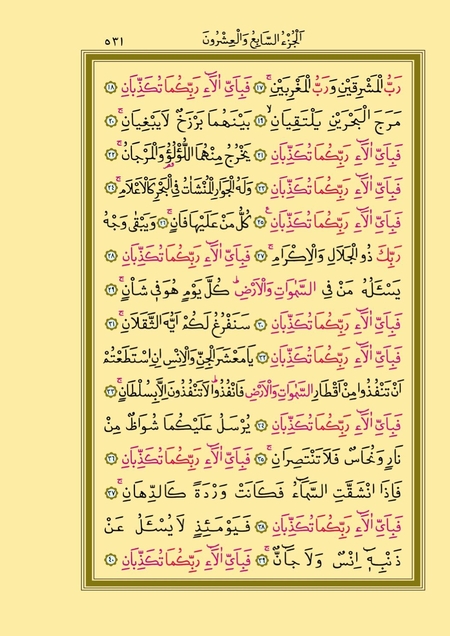 اَلْجُزْءُ السَّابِعُ وَالْعِشْرُونَ ٥٣١
رَبُّ الْمَشْرِقَيْنِ وَرَبُّ الْمَغْرِبَيْنِۚ ﴿١٧﴾ فَبِاَيِّ اٰلَٓاءِ رَبِّكُمَا تُكَذِّبَانِ ﴿١٨﴾
مَرَجَ الْبَحْرَيْنِ يَلْتَقِيَانِۙ ﴿١٩﴾ بَيْنَهُمَا بَرْزَخٌ لَا يَبْغِيَانِۚ ﴿٢٠﴾
فَبِاَيِّ اٰلَٓاءِ رَبِّكُمَا تُكَذِّبَانِ ﴿٢١﴾ يَخْرُجُ مِنْهُمَا اللُّؤْلُؤُ وَالْمَرْجَانُۚ ﴿٢٢﴾
فَبِاَيِّ اٰلَٓاءِ رَبِّكُمَا تُكَذِّبَانِ ﴿٢٣﴾ وَلَهُ الْجَوَارِ الْمُنْشَاٰتُ فِي الْبَحْرِ كَالْاَعْلَامِۚ ﴿٢٤﴾
فَبِاَيِّ اٰلَٓاءِ رَبِّكُمَا تُكَذِّبَانِ۟ ﴿٢٥﴾ كُلُّ مَنْ عَلَيْهَا فَانٍۚ ﴿٢٦﴾ وَيَبْقٰى وَجْهُ
رَبِّكَ ذُو الْجَلَالِ وَالْاِكْرَامِۚ ﴿٢٧﴾ فَبِاَيِّ اٰلَٓاءِ رَبِّكُمَا تُكَذِّبَانِ ﴿٢٨﴾
يَسْـَٔلُهُ مَنْ فِي السَّمٰوَاتِ وَالْاَرْضِۜ كُلَّ يَوْمٍ هُوَ فِي شَأْنٍۚ ﴿٢٩﴾
فَبِاَيِّ اٰلَٓاءِ رَبِّكُمَا تُكَذِّبَانِ ﴿٣٠﴾ سَنَفْرُغُ لَكُمْ اَيُّهَ الثَّقَلَانِۚ ﴿٣١﴾
فَبِاَيِّ اٰلَٓاءِ رَبِّكُمَا تُكَذِّبَانِ ﴿٣٢﴾ يَا مَعْشَرَ الْجِنِّ وَالْاِنْسِ اِنِ اسْتَطَعْتُمْ
اَنْ تَنْفُذُوا مِنْ اَقْطَارِ السَّمٰوَاتِ وَالْاَرْضِ فَانْفُذُواۜ لَا تَنْفُذُونَ اِلَّا بِسُلْطَانٍۚ ﴿٣٣﴾
فَبِاَيِّ اٰلَٓاءِ رَبِّكُمَا تُكَذِّبَانِ ﴿٣٤﴾ يُرْسَلُ عَلَيْكُمَا شُوَاظٌ مِنْ
نَارٍ وَنُحَاسٌ فَلَا تَنْتَصِرَانِۚ ﴿٣٥﴾ فَبِاَيِّ اٰلَٓاءِ رَبِّكُمَا تُكَذِّبَانِ ﴿٣٦﴾
فَاِذَا انْشَقَّتِ السَّمَٓاءُ فَكَانَتْ وَرْدَةً كَالدِّهَانِۚ ﴿٣٧﴾
فَبِاَيِّ اٰلَٓاءِ رَبِّكُمَا تُكَذِّبَانِ ﴿٣٨﴾ فَيَوْمَئِذٍ لَا يُسْـَٔلُ عَنْ
ذَنْبِه۪ٓ اِنْسٌ وَلَا جَٓانٌّۚ ﴿٣٩﴾ فَبِاَيِّ اٰلَٓاءِ رَبِّكُمَا تُكَذِّبَانِ ﴿٤٠﴾